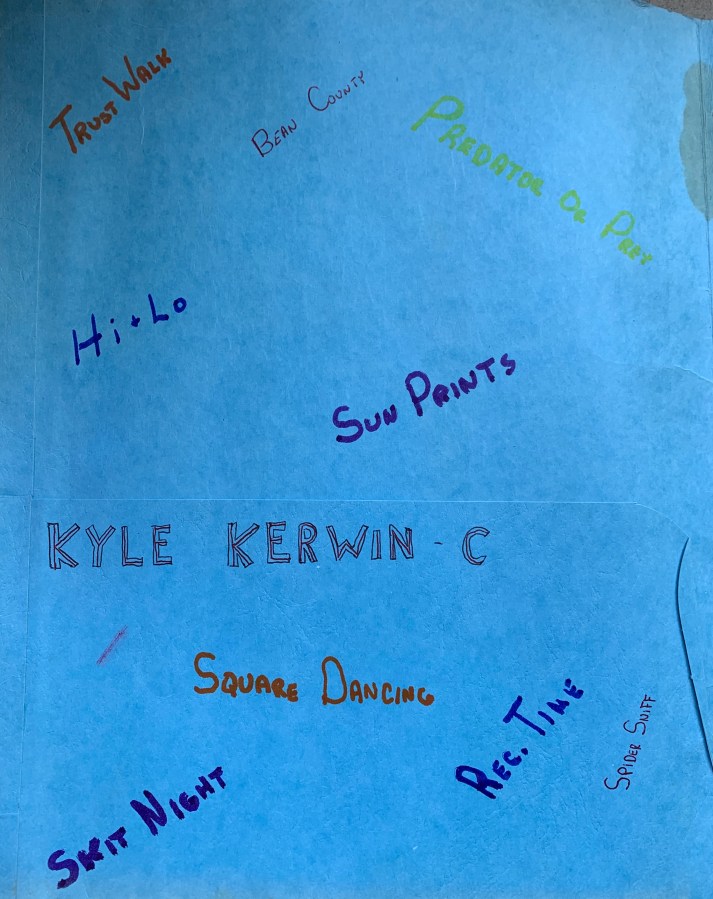 Trust Walk
Bean County
Predator or Prey
Hi + Lo
Sun Prints
KYLE KERWIN - C
Square Dancing
Rec. Time
Spider Sniff
Skit Night